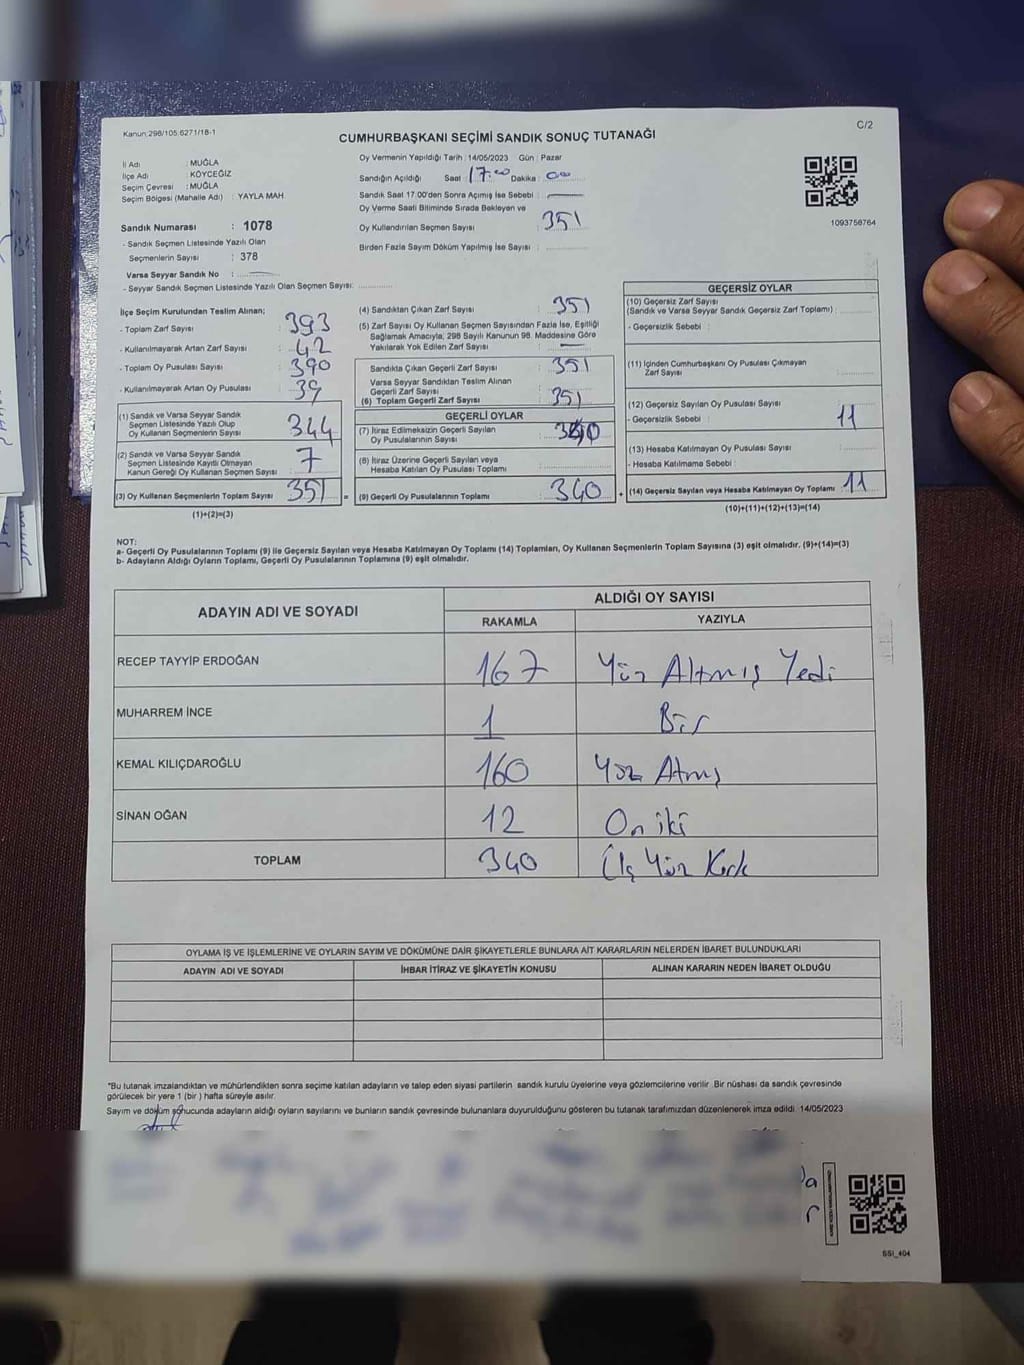 Kanun:298/105,6271/18-1
C/2
CUMHURBAŞKANI SEÇİMİ SANDIK SONUÇ TUTANAĞI
İl Adı : MUĞLA
İlçe Adı : KÖYCEĞİZ
Seçim Çevresi : MUĞLA
Seçim Bölgesi (Mahalle Adı) : YAYLA MAH
Sandık Numarası : 1078
- Sandık Seçmen Listesinde Yazılı Olan
Seçmenlerin Sayısı : 378
Varsa Seyyar Sandık No :
- Seyyar Sandık Seçmen Listesinde Yazılı Olan Seçmen Sayısı:
Oy Vermenin Yapıldığı Tarih : 14/05/2023 Gün : Pazar
Sandığın Açıldığı Saat : 17:00 Dakika : 00
Sandık Saat 17:00'den Sonra Açımış İse Sebebi :
Oy Verme Saati Bitiminde Sırada Bekleyen ve
Oy Kullandırılan Seçmen Sayısı : 351
Birden Fazla Sayım Döküm Yapılmış İse Sayısı :
1093758764
İlçe Seçim Kurulundan Teslim Alınan;
- Toplam Zarf Sayısı : 393
- Kullanılmayarak Artan Zarf Sayısı : 42
- Toplam Oy Pusulası Sayısı : 390
- Kullanılmayarak Artan Oy Pusulası : 39
(1) Sandık ve Varsa Seyyar Sandık
Seçmen Listesinde Yazılı Olup
Oy Kullanan Seçmenlerin Sayısı : 344
(2) Sandık ve Varsa Seyyar Sandık
Seçmen Listesinde Kayıtlı Olmayan
Kanun Gereği Oy Kullanan Seçmen Sayısı : 7
(3) Oy Kullanan Seçmenlerin Toplam Sayısı : 351 =
(1)+(2)=(3)
(4) Sandıktan Çıkan Zarf Sayısı : 351
(5) Zarf Sayısı Oy Kullanan Seçmen Sayısından Fazla İse, Eşitliği
Sağlamak Amacıyla; 298 Sayılı Kanunun 98. Maddesine Göre
Yakılarak Yok Edilen Zarf Sayısı :
Sandıkta Çıkan Geçerli Zarf Sayısı : 351
Varsa Seyyar Sandıktan Teslim Alınan
Geçerli Zarf Sayısı :
(6) Toplam Geçerli Zarf Sayısı : 351
GEÇERLİ OYLAR
(7) İtiraz Edilmeksizin Geçerli Sayılan
Oy Pusulalarının Sayısı : 340
(8) İtiraz Üzerine Geçerli Sayılan veya
Hesaba Katılan Oy Pusulası Toplamı :
(9) Geçerli Oy Pusulalarının Toplamı : 340 +
GEÇERSİZ OYLAR
(10) Geçersiz Zarf Sayısı
(Sandık ve Varsa Seyyar Sandık Geçersiz Zarf Toplamı) :
- Geçersizlik Sebebi :
(11) İçinden Cumhurbaşkanı Oy Pusulası Çıkmayan
Zarf Sayısı :
(12) Geçersiz Sayılan Oy Pusulası Sayısı
- Geçersizlik Sebebi : 11
(13) Hesaba Katılmayan Oy Pusulası Sayısı :
- Hesaba Katılmama Sebebi :
(14) Geçersiz Sayılan veya Hesaba Katılmayan Oy Toplamı : 11
(10)+(11)+(12)+(13)=(14)
NOT:
a- Geçerli Oy Pusulalarının Toplamı (9) ile Geçersiz Sayılan veya Hesaba Katılmayan Oy Toplamı (14) Toplamları, Oy Kullanan Seçmenlerin Toplam Sayısına (3) eşit olmalıdır. (9)+(14)=(3)
b- Adayların Aldığı Oyların Toplamı, Geçerli Oy Pusulalarının Toplamına (9) eşit olmalıdır.
ADAYIN ADI VE SOYADI ALDIĞI OY SAYISI
RAKAMLA YAZIYLA
RECEP TAYYİP ERDOĞAN 167 Yüz Altmış Yedi
MUHARREM İNCE 1 Bir
KEMAL KILIÇDAROĞLU 160 Yüz Atmış
SİNAN OĞAN 12 On iki
TOPLAM 340 Üç Yüz Kırk
OYLAMA İŞ VE İŞLEMLERİNE VE OYLARIN SAYIM VE DÖKÜMÜNE DAİR ŞİKAYETLERLE BUNLARA AİT KARARLARIN NELERDEN İBARET BULUNDUKLARI
ADAYIN ADI VE SOYADI İHBAR İTİRAZ VE ŞİKAYETİN KONUSU ALINAN KARARIN NEDEN İBARET OLDUĞU
*Bu tutanak imzalandıktan ve mühürlendikten sonra seçime katılan adayların ve talep eden siyasi partilerin sandık kurulu üyelerine veya gözlemcilerine verilir. Bir nüshası da sandık çevresinde
görülecek bir yere 1 (bir) hafta süreyle asılır.
Sayım ve döküm sonucunda adayların aldığı oyların sayılarını ve bunların sandık çevresinde bulunanlara duyurulduğunu gösteren bu tutanak tarafımızdan düzenlenerek imza edildi. 14/05/2023
SSI_404